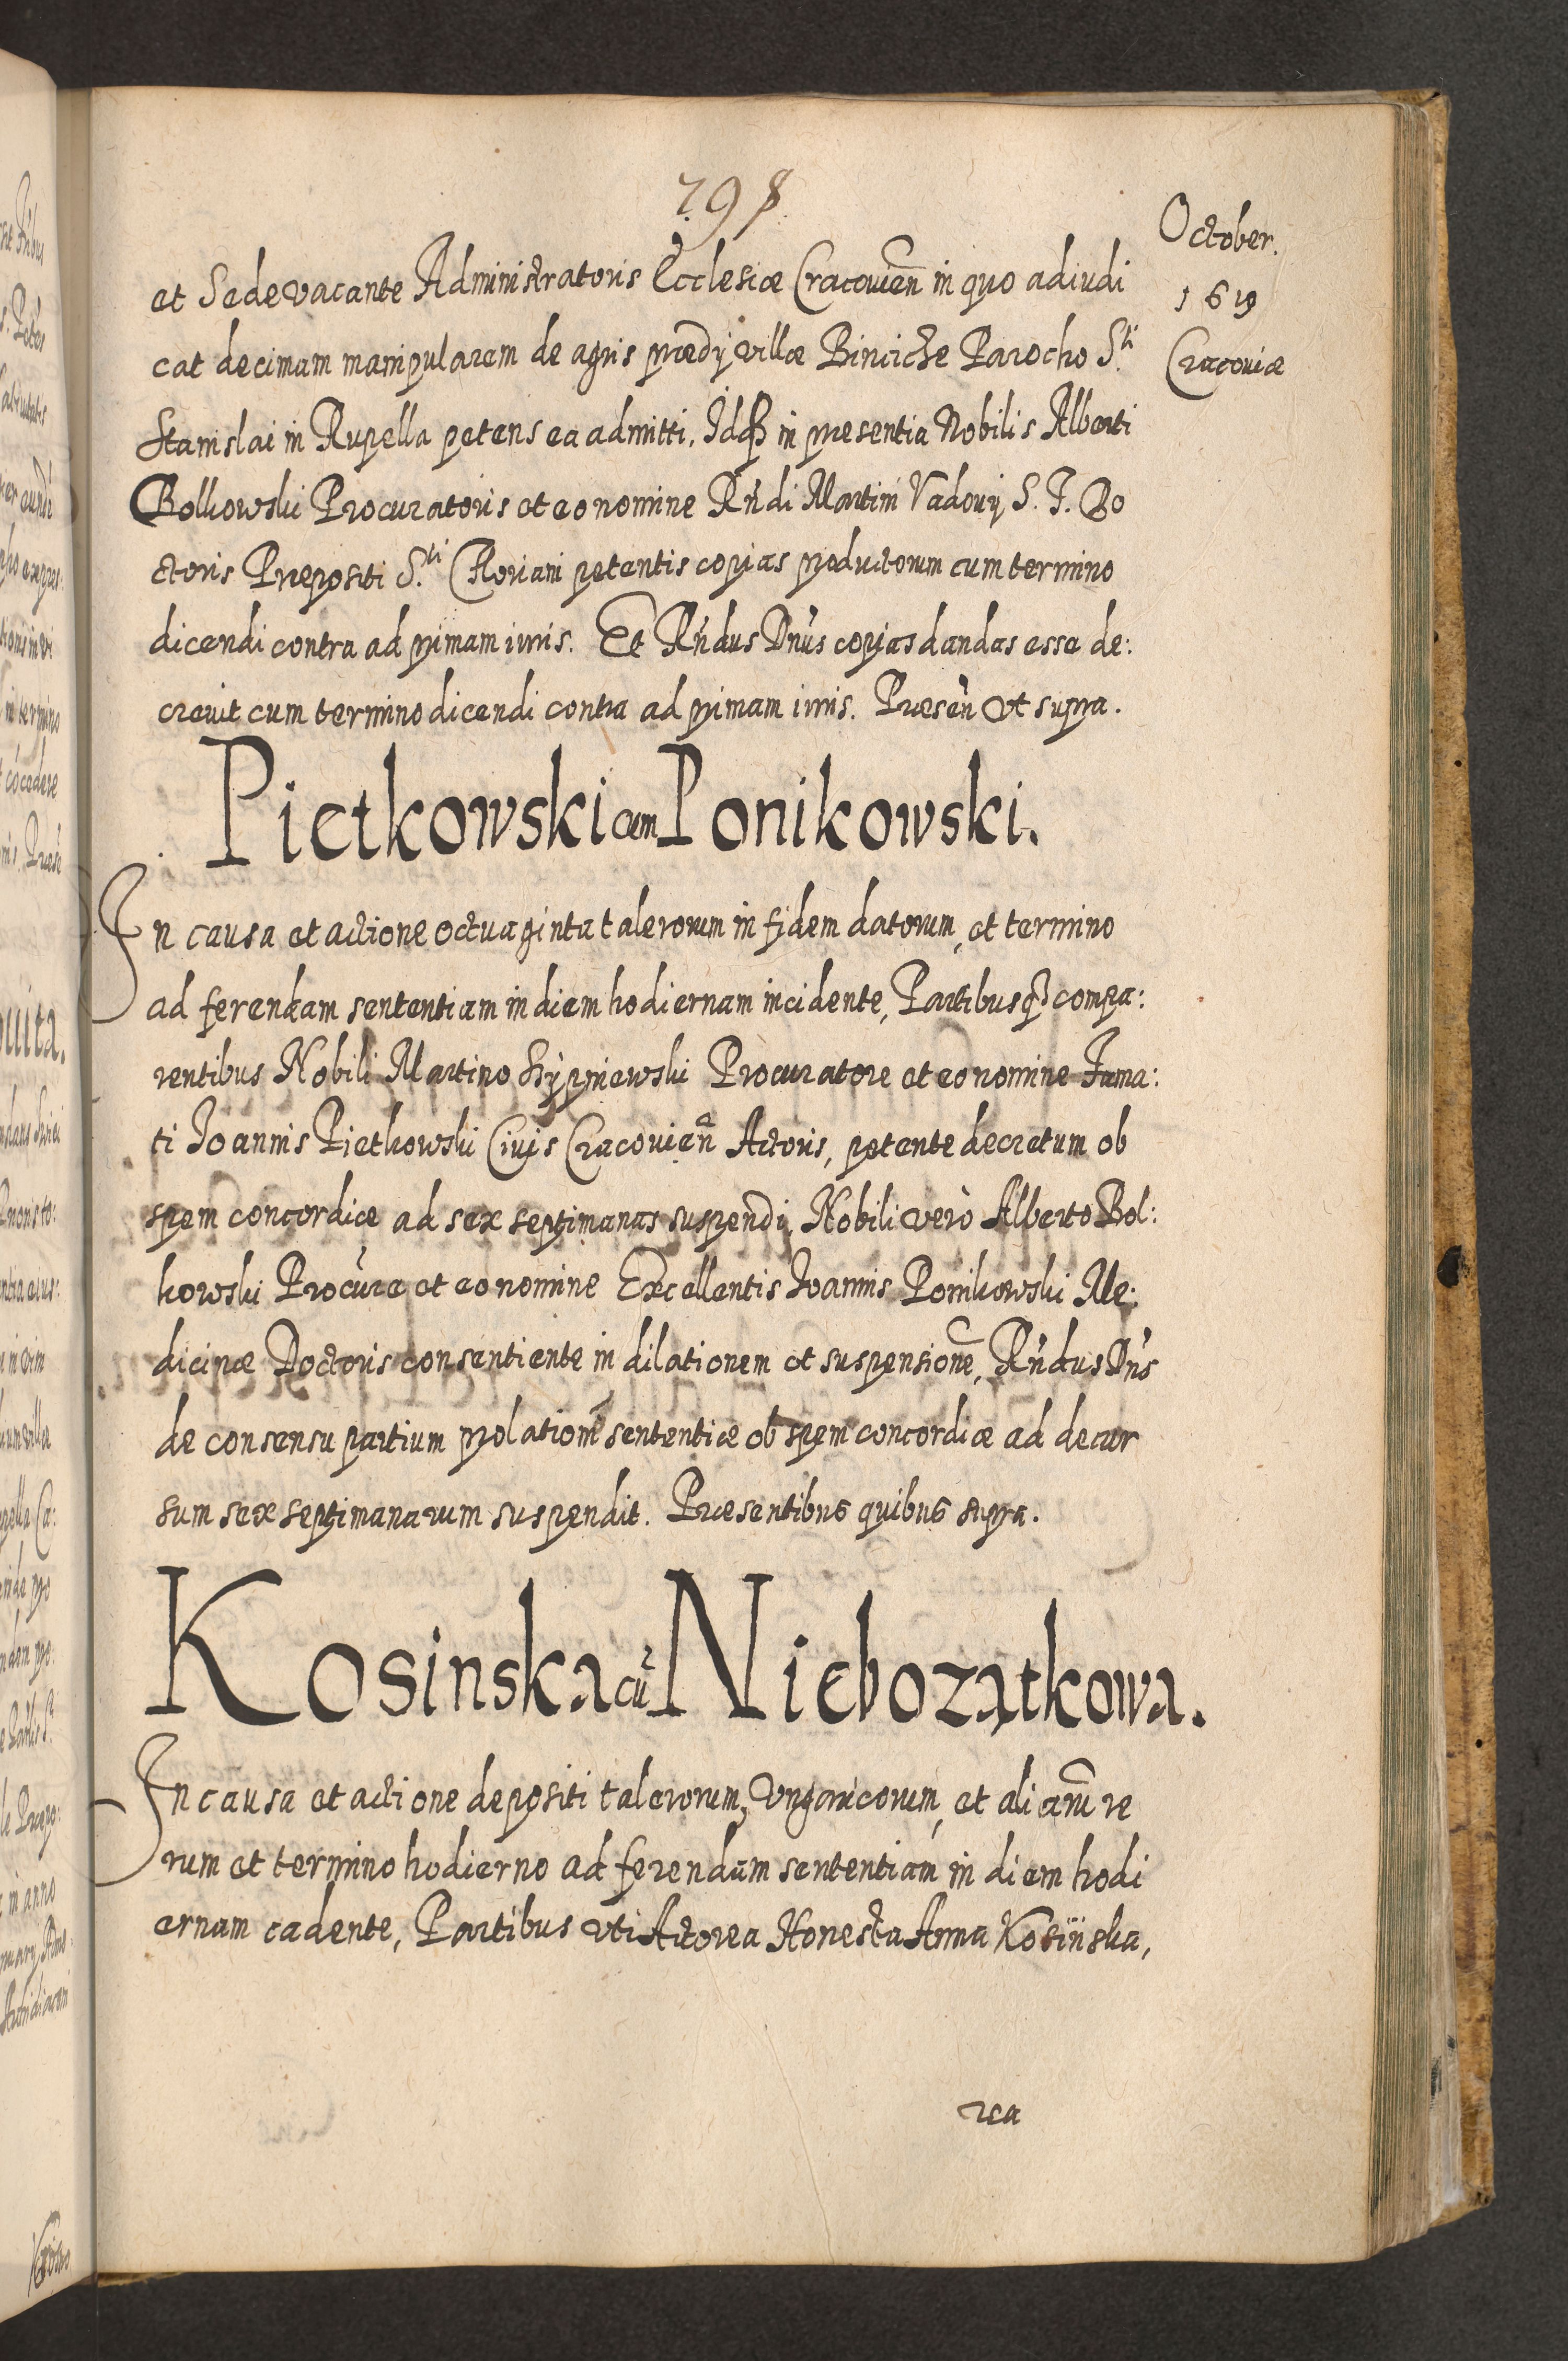 798
October.
1619
Cracoviæ
et Sede vacante Administratoris Ecclesiæ Cracovien̄ in quo adiudi
cat decimam manipularem de agris prædij villæ Binczicze Parocho S.ti
Stanislai in Rupella petens ea admitti. Idq̃ in presentia Nobilis Alberti
Bolkowski Procuratoris et eo nomine Rn̄di Martini Vadovij S. T. Do
ctoris Præpositi S.ti Floriani petentis copias productorum cum termino
dicendi contra ad primam iuris. Et Rn̄dus Dn̄us copias dandas esse de:
crevit cum termino dicendi contra ad primam iuris. Præsen̄ vt supra.
Pietkowski cum Ponikowski.
In causa et actione octuaginta talerorum in fidem datorum, et termino
ad ferendam sententiam in diem hodiernam incidente, Partibusq̃ compa:
rentibus Nobili Martino Srzypniewski Procuratore et eo nomine Fama:
ti Joannis Pietkowski Civis Cracovien̄ Actoris, petente decretum ob
spem concordiæ ad sex septimanas suspendi, Nobili verò Alberto Bol:
kowski Procūre et eo nomine Excellentis Joannis Ponikowski Me:
dicinæ Doctoris consentiente in dilationem et suspensionē, Rn̄dus Dn̄s
de consensu partium prolationē sententiæ ob spem concordiæ ad decur
sum sex septimanarum suspendit. Præsentibus quibus supra.
Kosinska cū Niebozątkowa.
In causa et actione depositi talerorum, Vngaricorum, et aliarū re
rum et termino hodierno ad ferendam sententiam in diem hodi
ernam cadente, Partibus vti Actorea Honesta Anna Kosińska,
rea